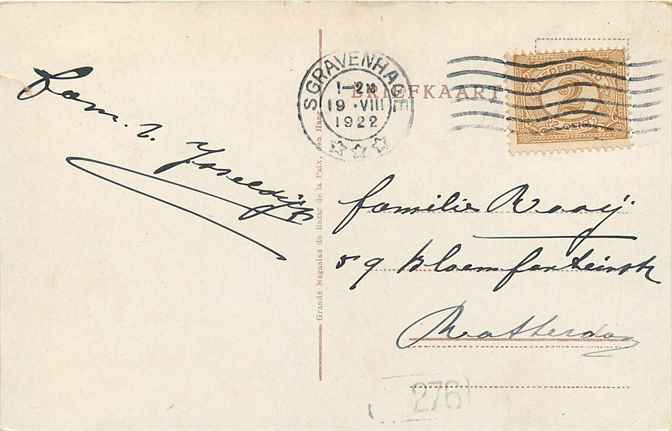 Fam. v. Ysseldijk
'S GRAVENHAGE
1-2N
19 VIII
1922
BRIEFKAART
NEDERLAND
Grands Magasins du Bazar de la Paix, den Haag
familie Raaij.
59 bloemfonteinstr
Rotterdam
276